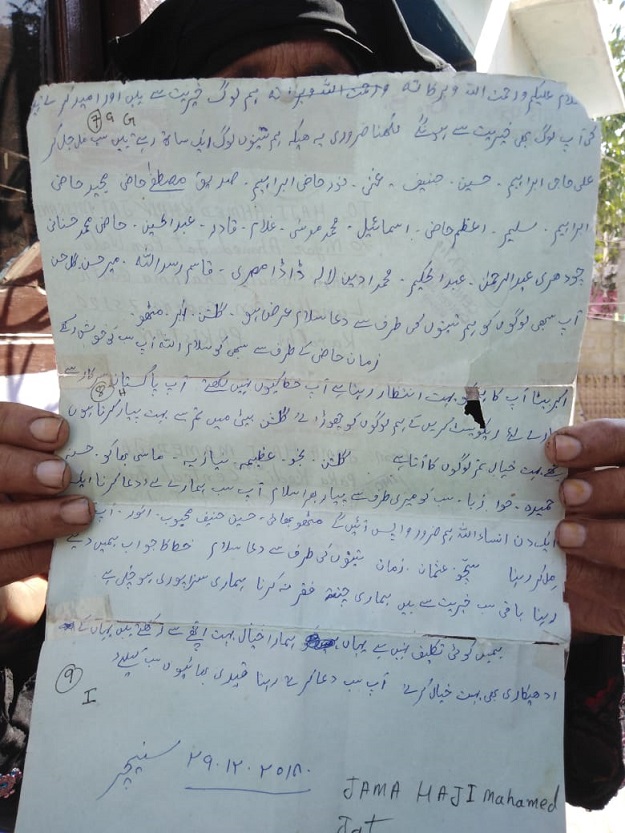 سلام علیکم ورحمت اللہ وبرکاتہ ورحمت اللہ وبرکاتہ ہم لوگ خیریت سے ہیں اور امید کرتے ہیں
کی آپ لوگ بھی خیریت سے ہوں گے لکھنا ضروری یہ ہیکہ ہم تینوں لوگ ایک ساتھ رہتے ہیں سب مل جل کر
7 9 G
علی حاجی ابراہیم - حسین - حنیف - غنی - نور حاجی ابراہیم - مصطفیٰ حاجی مجید حاجی
ابراہیم - سلیم - اعظم حاجی - اسمائیل - محمد موسی - غلام - قادر - عبدالحسین - حاجی محمد حسنانی
چودھری عبدالرحمٰن - عبدالحکیم - محمد امین لالہ ڈاڈا مصری - قاسم رسد اللہ - میر حسن گل حسن
آپ سبھی لوگوں کو ہم تینوں کی طرف سے دعا سلام عرض ہو - گلشن - اکبر - مٹھو -
زمان حاجی کا طرف سے سبھی کو سلام اللہ آپ سب کو خوش رکھے
اکبر بیٹا آپ کا بہت انتظار رہتا ہے آپ خط کیوں نہیں لکھتے آپ پاکستان سے
8 H
ہمارے لئے ریکویسٹ کریں تاہم لوگوں کو چھوڑا لے گلشن بیٹی میں تم سے بہت پیار کرتا ہوں
مجھے بہت خیال تم لوگوں کا آتا ہے گلشن - نجو - عظیم - نیاز یہ - ماسی بھاگو - حسینہ
حمیرہ - حوا زبا - سب کو میری طرف سے پیار بھرا سلام آپ سب ہمارے لئے دعا کرنا ایک
ایک دن انساء اللہ ہم ضرور واپس آئیں گے مٹھو بھائی - حسین حنیف محبوب - انور - آپ
ملکر رہنا عثمان - زمان تینوں کی طرف سے دعا سلام خط کا جواب ہمیں دیتے
رہنا باقی سب خیریت سے ہیں ہماری فقر نہ کرنا ہماری سزا پوری ہو چکی ہے
ہمیں کوئی تکلیف نہیں ہے یہاں ہمارا خیال بہت اچھے سے رکھتے ہیں یہاں کے
ادھیکاری بھی بہت خیال کرتے آپ سب دعا کرتے رہنا قیدی بھائیوں سب کیلئے
9 I
سنیچر ٢٩.١٢.٢٠١٨.
JAMA HAJI Mahamed
Jat